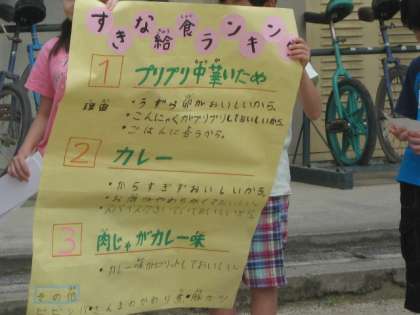 すきな給食ランキング
1 プリプリ中華いため
理由
・うずら卵がおいしいから。
・こんにゃくがプリプリしておいしいから。
・ごはんに合うから。
2 カレー
・からすぎずおいしいから。
・お肉がやわらかくておいしい
3 肉じゃがカレー味
・カレー味がピリッとしておいしい
その他